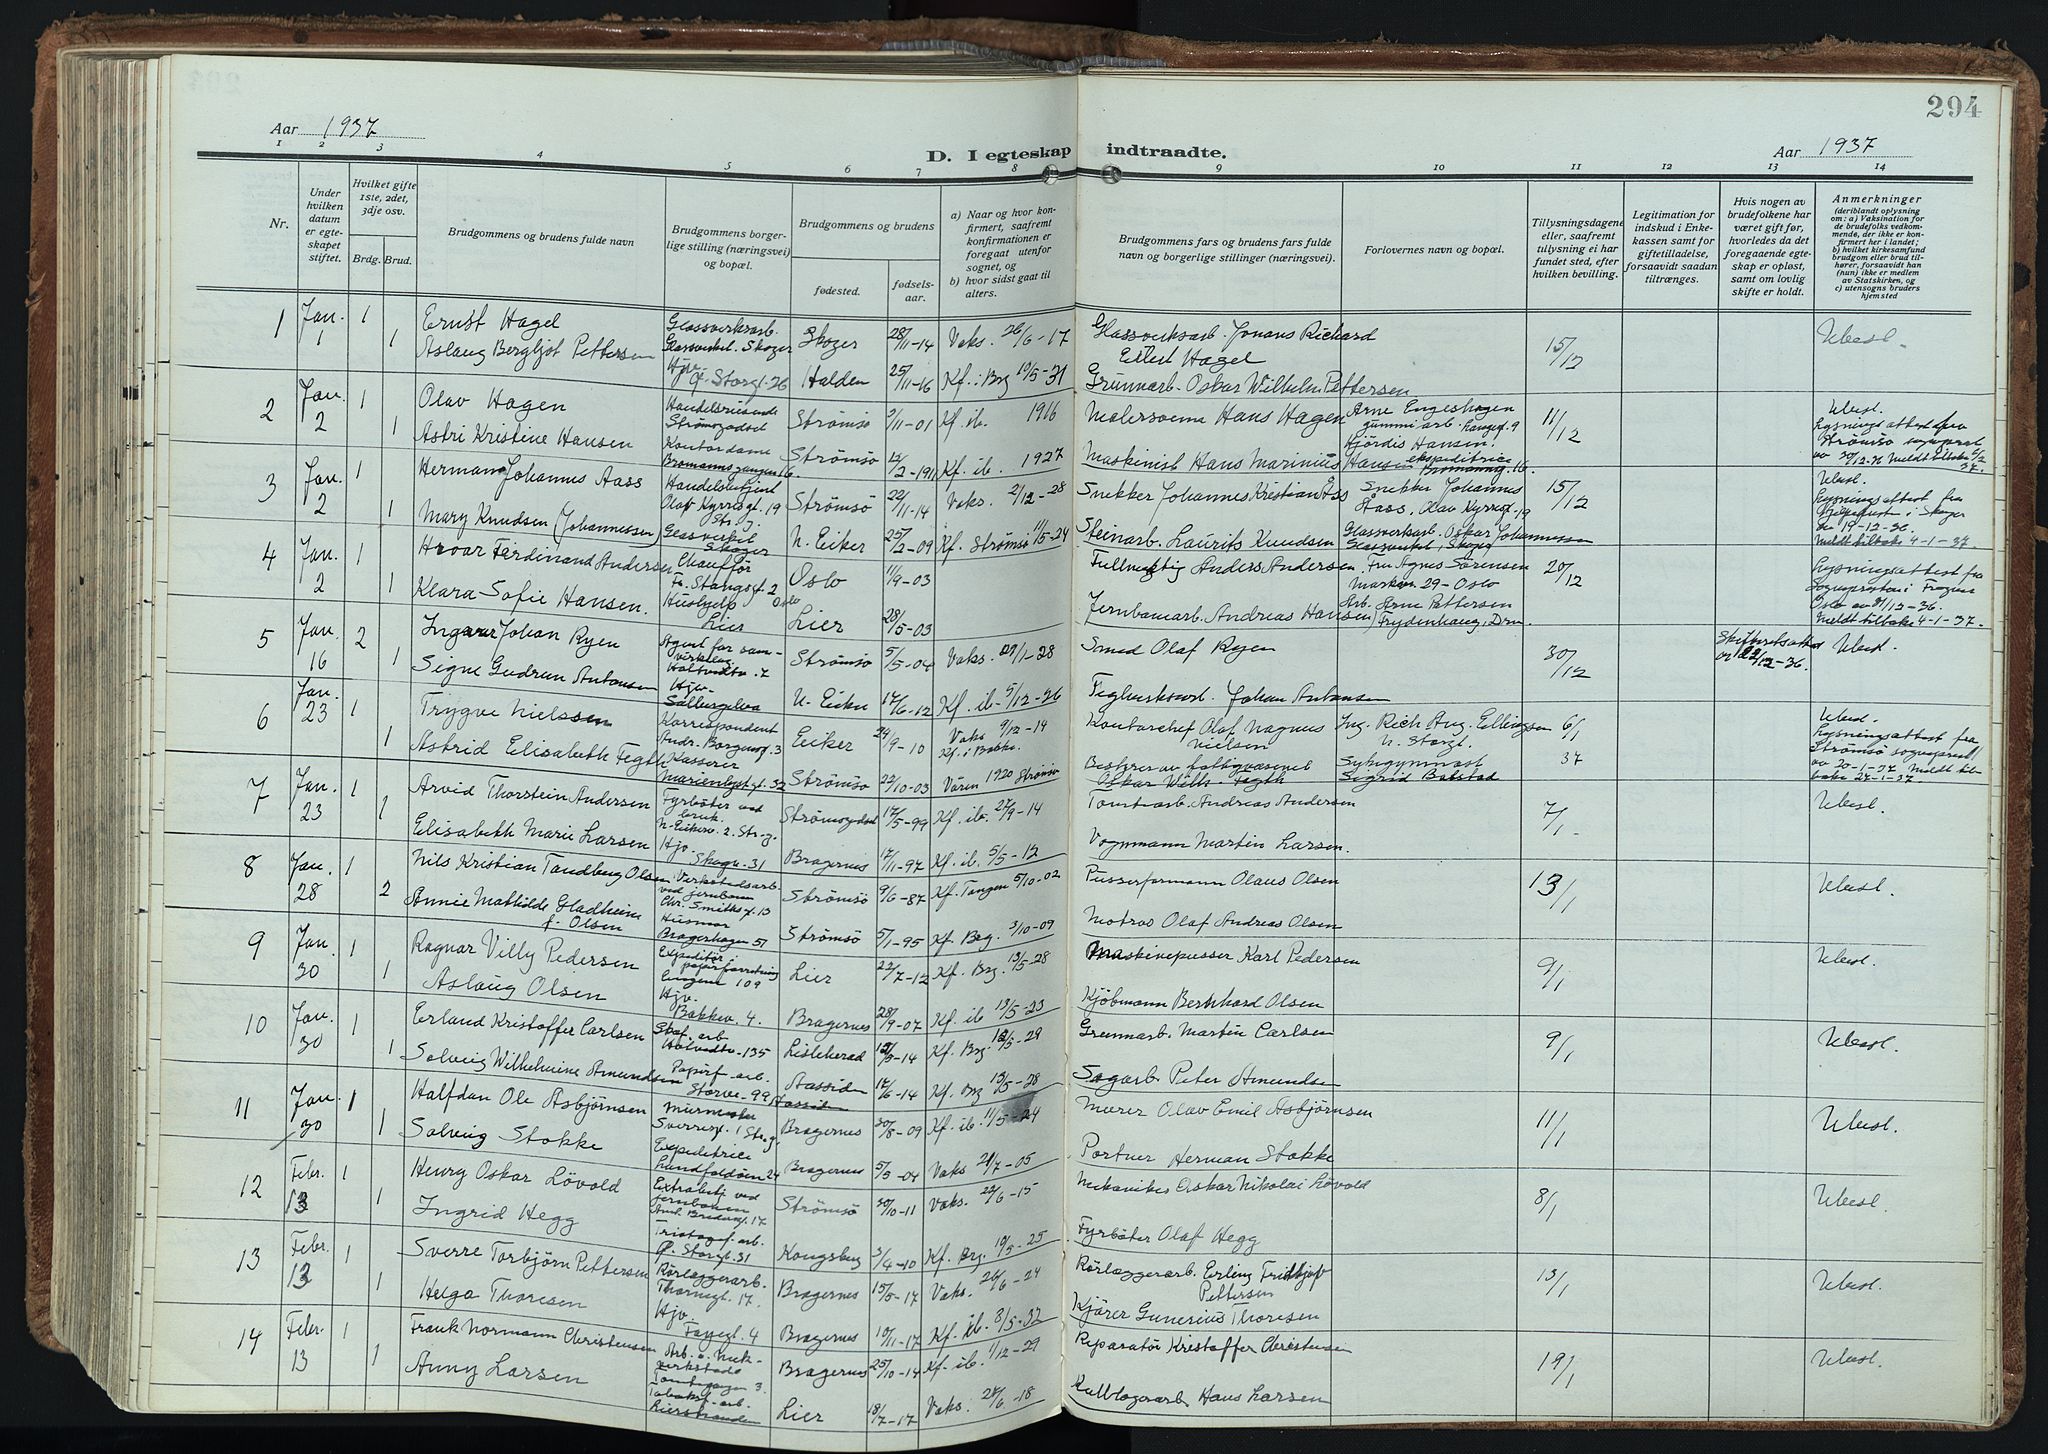 294
Aar 1937
D. I egteskap indtraadte.
Aar 1937
1 2 3 4 5 6 7 8 9 10 11 12 13 14
Nr.
Under hvilken datum er egteskapet stiftet.
Hvilket gifte 1ste, 2det, 3dje osv.
Brdg. Brud.
Brudgommens og brudens fulde navn
Brudgommens borgerlige stilling (næringsvei) og bopæl.
Brudgommens og brudens
fødested.
fødselsaar.
a) Naar og hvor konfirmert, saafremt konfirmationen er foregaat utenfor sognet, og
b) hvor sidst gaat til alters.
Brudgommens fars og brudens fars fulde navn og borgerlige stillinger (næringsvei).
Forlovernes navn og bopæl.
Tillysningsdagene eller, saafremt tillysning ei har fundet sted, efter hvilken bevilling.
Legitimation for indskud i Enkekassen samt for giftetilladelse, forsaavidt saadan tiltrænges.
Hvis nogen av brudefolkene har været gift før, hvorledes da det foregaaende egteskap er opløst, samt om lovlig skifte er holdt.
Anmerkninger
(deriblandt oplysning om: a) Vaksination for de brudefolks vedkommende, der ikke er konfirmert her i landet; b) hvilket kirkesamfund brudgom eller brud tilhører, forsaavidt han (hun) ikke er medlem av Statskirken, og c) utensogns bruders hjemsted
1 Jan. 1 1 Ernst Hagel Glassverksarb. Glassverket. Skoger Skoger 28/11-14 Vaks. 26/6-17 Glassverksarb. Jonans Richard Eilert Hagel 15/12 Ubesl.
1 Aslaug Bergljot Pettersen Hjv. Ø. Storgt. 26 Halden 25/11-16 Kf. i Brg 10/5-31 Grunnarb. Oskar Wilhelm Pettersen
2 Jan. 2 1 Olav Hagen Handelsreisende Strømsgodset Strømsø 3/11-01 Kf. ib. 1916 Malersvenn Hans Hagen Arne Engeshagen gummiarb. 11/12 Ubesl. Lysningsattest fra Strømsø sogneprest av 30/12-36 Meldt tilbake 5/2 37.
1 Astri Kristine Hansen Kontordame Bromannsgangen 16. Strømsø 12/2-1911 Kf. ib. 1927 Maskinist Hans Marinius Hansen Hjördis Hansen. ekspeditrice Bromannsg. 16.
3 Jan. 2 1 Herman Johannes Aass Handelsbetjent Olav Kyrresgt. 19 Str. g. Strømsø 22/11-14 Vaks. 2/12-28 Snekker Johannes Kristian Åss Snekker Johannes Åass, Olav Kyrresgt. 19 15/12 Ubesl. Lysningsattest fra Sogneprest i Skoger av 19-12-36. Meldt tilbake 4-1-37.
1 Mary Knudsen (Johannessen) Glassverket Skoger N. Eiker 25/2-09 Kf. Strømsø 11/5-24 Steinarb. Laurits Knudsen Glassverksarb. Oskar Johannessen Glassverket, Skoger
4 Jan. 2 1 Hroar Ferdinand Andersen Chauffør Fr. Stangsgt. 2 Oslo Oslo 11/9-03 Fullmektig Anders Andersen Fru Agnes Sørensen Markvn 29-Oslo 20/12 Lysningsattest fra Sognepresten i Frogner Oslo av 31/12-36. Meldt tilbake 4-1-37.
1 Klara Sofie Hansen. Hushjelp Lier Lier 28/5-03 Jernbanearb. Andreas Hansen Arb. Arne Pettersen Frydenhaug, Drm
5 Jan. 16 2 Ingvar Johan Ryen Agent for samvirkelag Holtvedtv. 7 Strømsø 5/5-04 Vaks. 29/1-28 Smed Olaf Ryen 30/12 Skifterettsattest av 22/12-36. Ubesl.
1 Signe Gudrun Antonsen Hjv. Solbergelva N. Eiker 17/6-12 Kf. ib 5/12-26 Teglverksarb. Johan Antonsen
6 Jan. 23 1 Trygve Nielssen Korrespondent Andr. Borgensgt. 3 Eiker 24/9-10 Vaks 9/12-14 Kf. i Bakke. Kontorchef Olaf Magnus Nielsen Ing. Rich Aug. Ellingsen N. Storgt. 6/1 37 Ubesl. Lysningsattest fra Strømsø sogneprest av 20-1-37. Meldt tilbake 27-1-37.
1 Astrid Elisabeth Fegth Kasserer Marienlystgt. 32 Strømsø 22/10-03 Våren 1920 Strømsø Bestyrer av fattigvæsenet Oskar Wilh. Fegth Sykegymnast Sigrid Bakstad
7 Jan. 23 1 Arvid Thorstein Andersen Fyrbøter ved bruk N. Eikerv. 2. Str. g. Strømsgodset 17/5-99 Kf. ib. 27/9-14 Tomtearb. Andreas Andersen 7/1 Ubesl.
1 Elisabeth Marie Larsen Hjv. Skogv. 31 Bragernes 17/11-97 Kf. ib. 5/5-12 Vognmann Martin Larsen.
8 Jan. 28 1 Nils Kristian Tandberg Olsen Verkstedsarb. ved jernbanen Chr. Smithsgt. 13 Strømsø 9/6-87 Kf. Tangen 5/10-02 Pusserformann Olaus Olsen 13/1 Ubesl.
2 Annie Mathilde Gladheim f. Olsen Husmor Bragerhagen 51 Strømsø 5/1-95 Kf. Brg. 3/10-09 Matros Olaf Andreas Olsen
9 Jan. 30 1 Ragnar Villy Pedersen Expeditør i papirforretning Engene 109 Lier 22/7-12 Kf. Brg. 13/5-28 Maskinpusser Karl Pedersen 9/1 Ubesl.
1 Aslaug Olsen Hjv. Bakkev. 4. Bragernes 28/9-07 Kf. ib 13/5-23 Kjöbmann Bernhard Olsen
10 Jan. 30 1 Erland Kristoffer Carlsen Skof. arb Holvedtv-135 Lisleherad 12/5-14 Kf. Brg. 12/5-29 Grunnarb. Martin Carlsen 9/1 Ubesl.
1 Solveig Wilhelmine Amundsen Papirf-arb. Storve-99 Aassiden 17/6-14 Kf. Brg 13/5-28 Sagarb. Peter Amundsen
11 Jan. 30 1 Halfdan Ole Asbjørnsen Murmester Sverresgt. 1 Str. g. Bragernes 30/8-09 Kf. ib. 11/5-24 Murer Olav Emil Asbjørnsen 11/1 Ubesl.
1 Solveig Stokke Expeditrice Lundfaldøen 24 Bragernes 5/5-04 Vaks 21/7-05 Portner Herman Stokke
12 Febr. 13 1 Henry Oskar Lövold Extrabetj. ved jernbanen Strømsø 30/10-11 Vaks. 22/6-15 Mekaniker Oskar Nikolai Lövold 8/1 Ubesl.
1 Ingrid Hegg Tricotagef. arb. Ø. Storgt. 31 Kongsberg 3/4-10 Kf. Brg. 10/5-25 Fyrbøter Olaf Hegg
13 Febr. 13 1 Sverre Torbjörn Pettersen Rørleggerarb. Thornegt. 17. Bragernes 15/5-17 Vaks. 26/6-24 Rörleggerarb. Erling Fridtjof Pettersen 13/1 Ubesl.
1 Helga Thoresen Hjv. Fayegt. 4 Bragernes 10/11-17 Kf. ib. 8/5-32 Kjörer Gunerius Thoresen
14 Febr. 13 1 Frank Normann Christensen Arb. i Mek-verksted Tomtegaten 3. Bragernes 25/10-14 Kf. ib. 1/12-29 Reparatør Kristoffer Christensen 19/1 Ubesl.
1 Anny Larsen Tobaksf.-arb. Lierstranden Lier 18/7-17 Vaks. 28/6-18 Kullagerarb. Hans Larsen